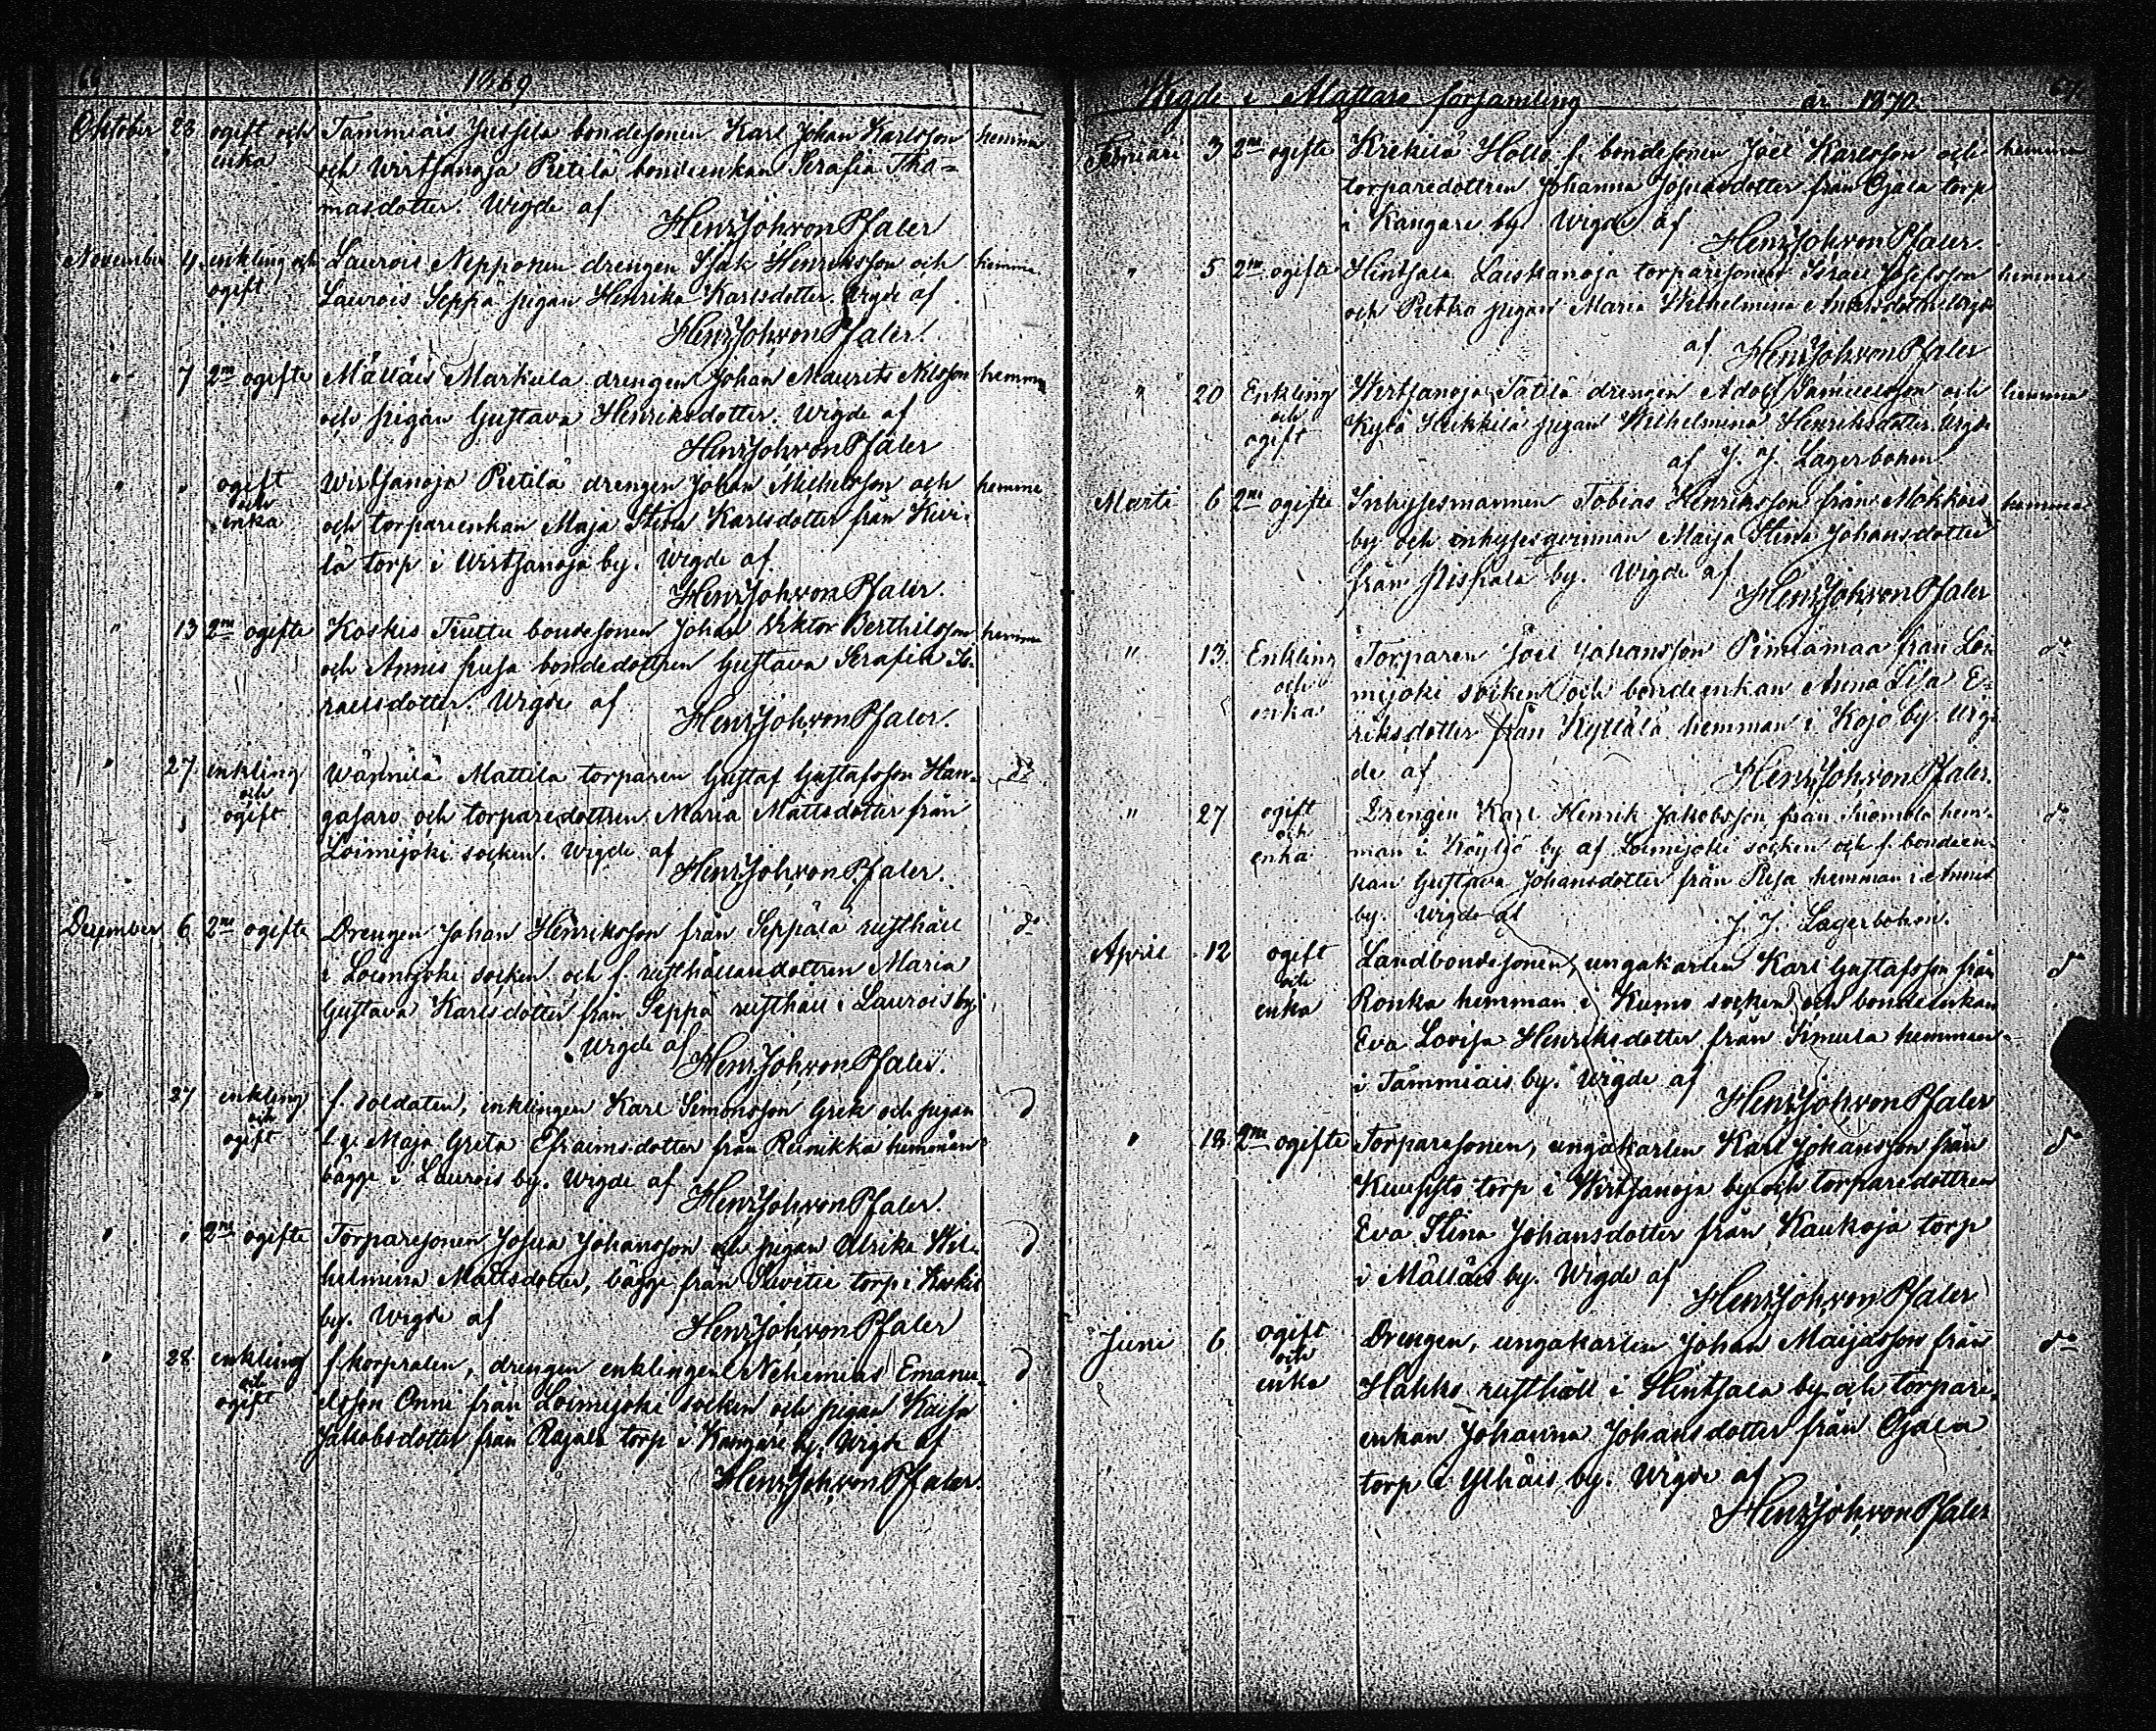 66 1869
Oktober 23 ogift och Tammiais Jussila bondesonen Karl Johan Karlsson hemma
enka och Wirtsanoja Pietilä bondeenkan Serafia Tho=
masdotter. Wigde af
Henr. Joh. von Pfaler
November 4. enkling och Laurois Nepponen drengen Isak Henriksson och hemma
ogift Laurois Seppä pigan Henrika Karlsdotter. Wigde af
Henr. Joh. von Pfaler.
" 7 2ne ogifte Mälläis Markula drengen Johan Maurits Nilsson hemma
och pigan Gustava Henriksdotter. Wigde af
Henr. Joh. von Pfaler
" " ogift Wirtsanoja Pietilä drengen Johan Michelsson och hemma
och enka och torpareenkan Maja Stina Karlsdotter från Kivi-
lä torp i Wirtsanoja by. Wigde af
Henr. Joh. von Pfaler.
" 13 2ne ogifte Koskis Tuittu bondesonen Johan Wiktor Berthilsson hemma
och Annis Pusa bondedottren Gustava Serafia Is-
raelsdotter. Wigde af
Henr. Joh. von Pfaler.
" 27. enkling Wännilä Mattila torparen Gustaf Gustafsson Han- do
och ogift gasaro och torparedottren Maria Mattsdotter från
Loimijoki socken. Wigde af
Henr. Joh. von Pfaler.
December 6 2ne ogifte Drengen Johan Henriksson från Seppälä rusthåll do
i Loimijoki socken och f. rusthållaredottren Maria
Gustava Karlsdotter från Seppä rusthåll i Laurois by
Wigde af
Henr. Joh. von Pfaler.
" 27 enkling f. soldaten, enklingen Karl Simonsson Grek och pigan d
och ogift Maja Greta Efraimsdotter från Reinikka hemman
bägge i Laurois by. Wigde af
Henr. Joh. von Pfaler.
" " 2ne ogifte Torparesonen Josua Johansson och pigan Ulrika Wil- d
helmina Mattsdotter, bägge från torp i Koskis
by. Wigde af
Henr. Joh. von Pfaler
" 28 enkling f. korpralen, drengen enklingen Nehemias Emanu- d
och ogift elsson Onni från Loimijoki socken och pigan Kaisa
Jakobsdotter från Rajala torp i Kangare by. Wigde af
Henr. Joh. von Pfaler.
Wigde i församling år 1870. 67.
Februari 3 2ne ogifte Krekilä Hollo f. bondesonen Joel Karlsson och hemma
torparedottren Johanna Johansdotter från Ojala torp
i Kangare by. Wigde af
Henr. Joh. von Pfaler.
" 5 2ne ogifte Hintsala Laiskanoja torparesonen Israel Josefsson hemma
och pigan Maria Wilhelmina Wigde
af Henr. Joh. von Pfaler
" 20 Enkling Wirtsanoja Tätilä drengen Adolf Samuelsson och hemma
och ogift Kylä Heikkilä pigan Wilhelmina Henriksdotter. Wigde
af J. J. Lagerbohm
Marti 6 2ne ogifte Inhysesmannen Tobias Henriksson från hemma
by och inhysesqvinnan Maija Stina Johansdotter
från by. Wigde af
Henr. Joh. von Pfaler
" 13. Enkling Torparen Joel Johansson Pimiämaa från Loi- do
och enka mijoki socken och bondeenkan Anna Lisa E-
riksdotter från Kyttälä hemman i Kojo by. Wig-
de af Henr. Joh. von Pfaler.
" 27 ogift Drengen Karl Henrik Jakobsson från hem- do
och enka man i Köyliö by af Loimijoki socken och f. bondeen-
kan Gustava Johansdotter från Pusa hemman i Annis
by. Wigde af J. J. Lagerbohm.
April 12 ogift Landbondesonen, ungakarlen Karl Gustafsson från do
och enka Ronka hemman i Kumo socken och bondeenkan
Eva Lovisa Henriksdotter från Simula hemman
i Tammiais by. Wigde af
Henr. Joh. von Pfaler
" 18. 2ne ogifte Torparesonen, ungakarlen Karl Johansson från do
Kuusisto torp i Wirtsanoja by och torparedottren
Eva Stina Johansdotter från Kaukoja torp
i Mälläis by. Wigde af
Henr. Joh. von Pfaler
Juni 6 ogift Drengen, ungakarlen Johan Maijasson från do
och enka Hakko rusthåll i Hintsala by och torpare-
enkan Johanna Johansdotter från Ojala
torp i Ylhäis by. Wigde af
Henr. Joh. von Pfaler